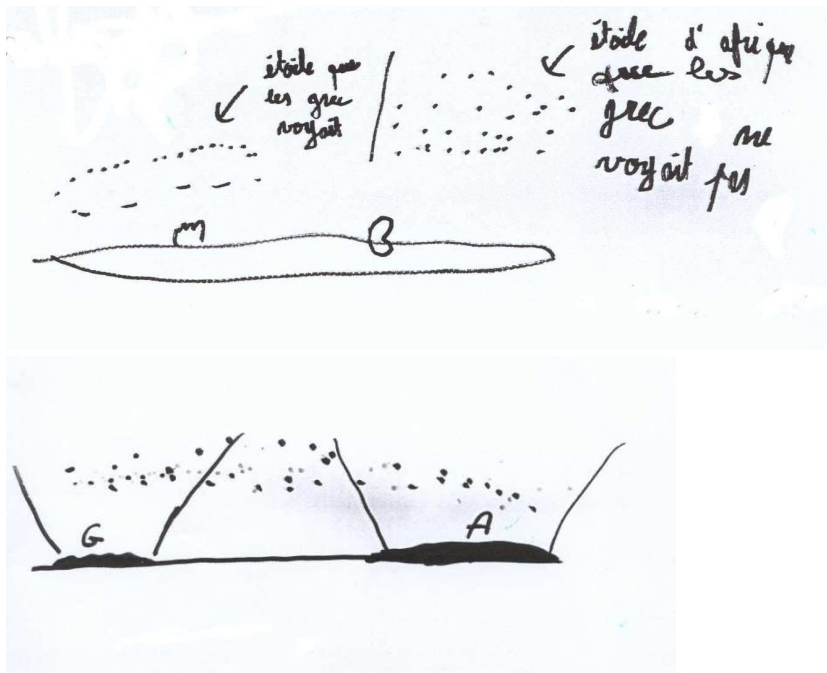 étoile que
les grec
voyait
étoile d'afrique
que les
grec
ne
voyait pas
G
A